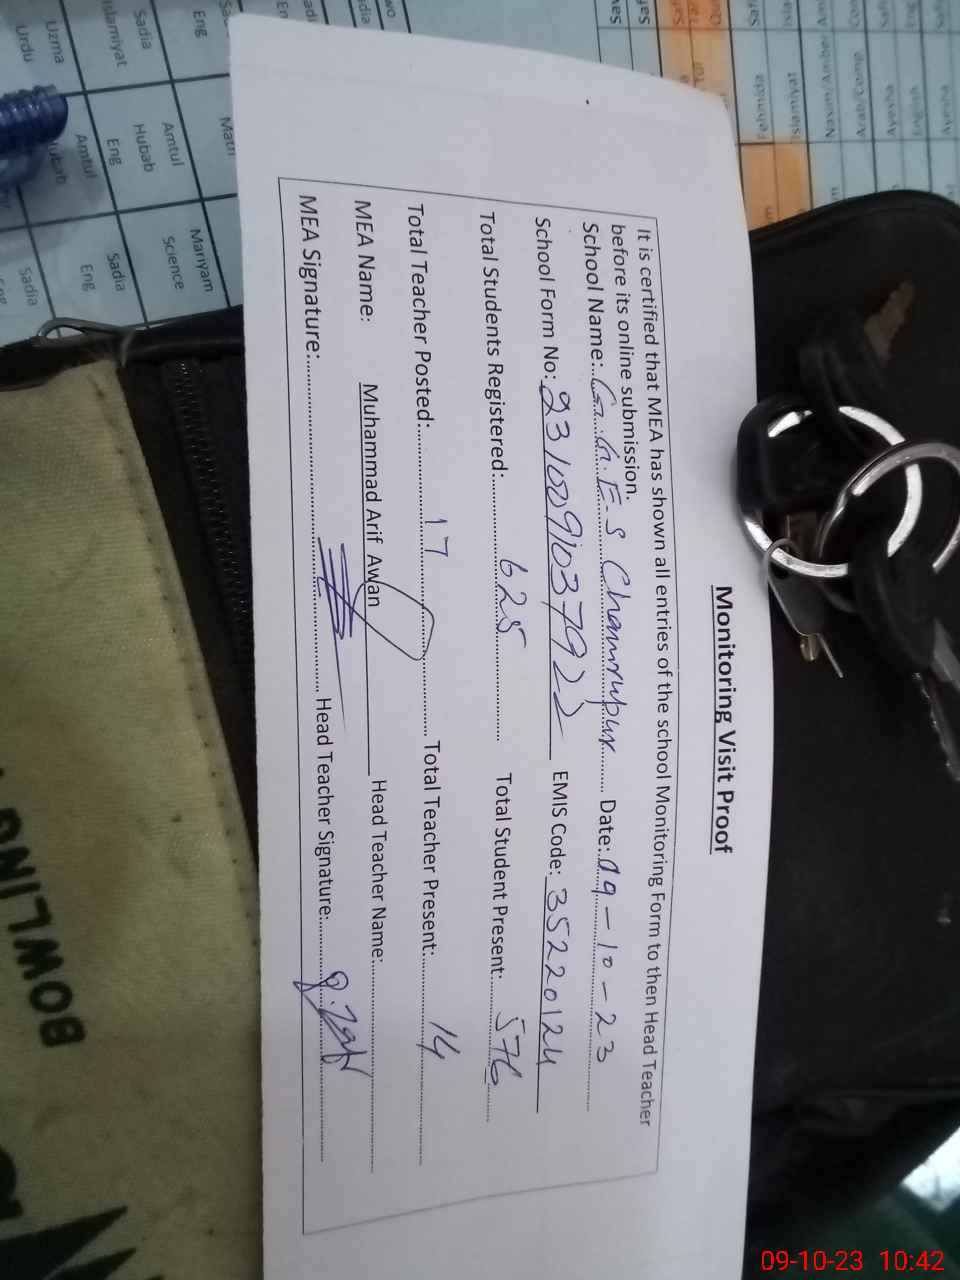 Monitoring Visit Proof
It is certified that MEA has shown all entries of the school Monitoring Form to then Head Teacher
before its online submission.
School Name: G.G.E.S Chanurpur Date: 09-10-23
School Form No: 2310091037922 EMIS Code: 35220124
Total Students Registered: 625 Total Student Present: 576
Total Teacher Posted: 17 Total Teacher Present: 14
MEA Name: Muhammad Arif Awan Head Teacher Name:
MEA Signature: Head Teacher Signature:
BOWLING
Uzma
Urdu
Islamiyat
Sadia
Eng
Math
Amtul
Hubab
Eng
Amtul
Mariyam
Science
Sadia
Eng
Sadia
Eng
Fehmida
Islamiyat
Nasim/Amber
Arab/Comp
Ayesha
English
09-10-23 10:42